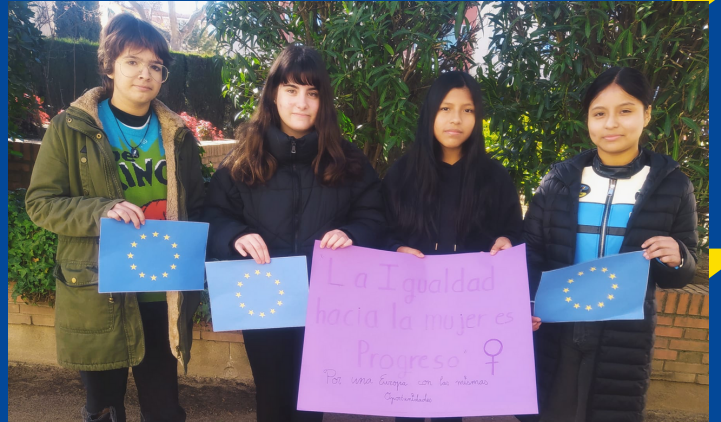 "La Igualdad
hacia la mujer es
Progreso"
Por una Europa con las mismas
Oportunidades
KING